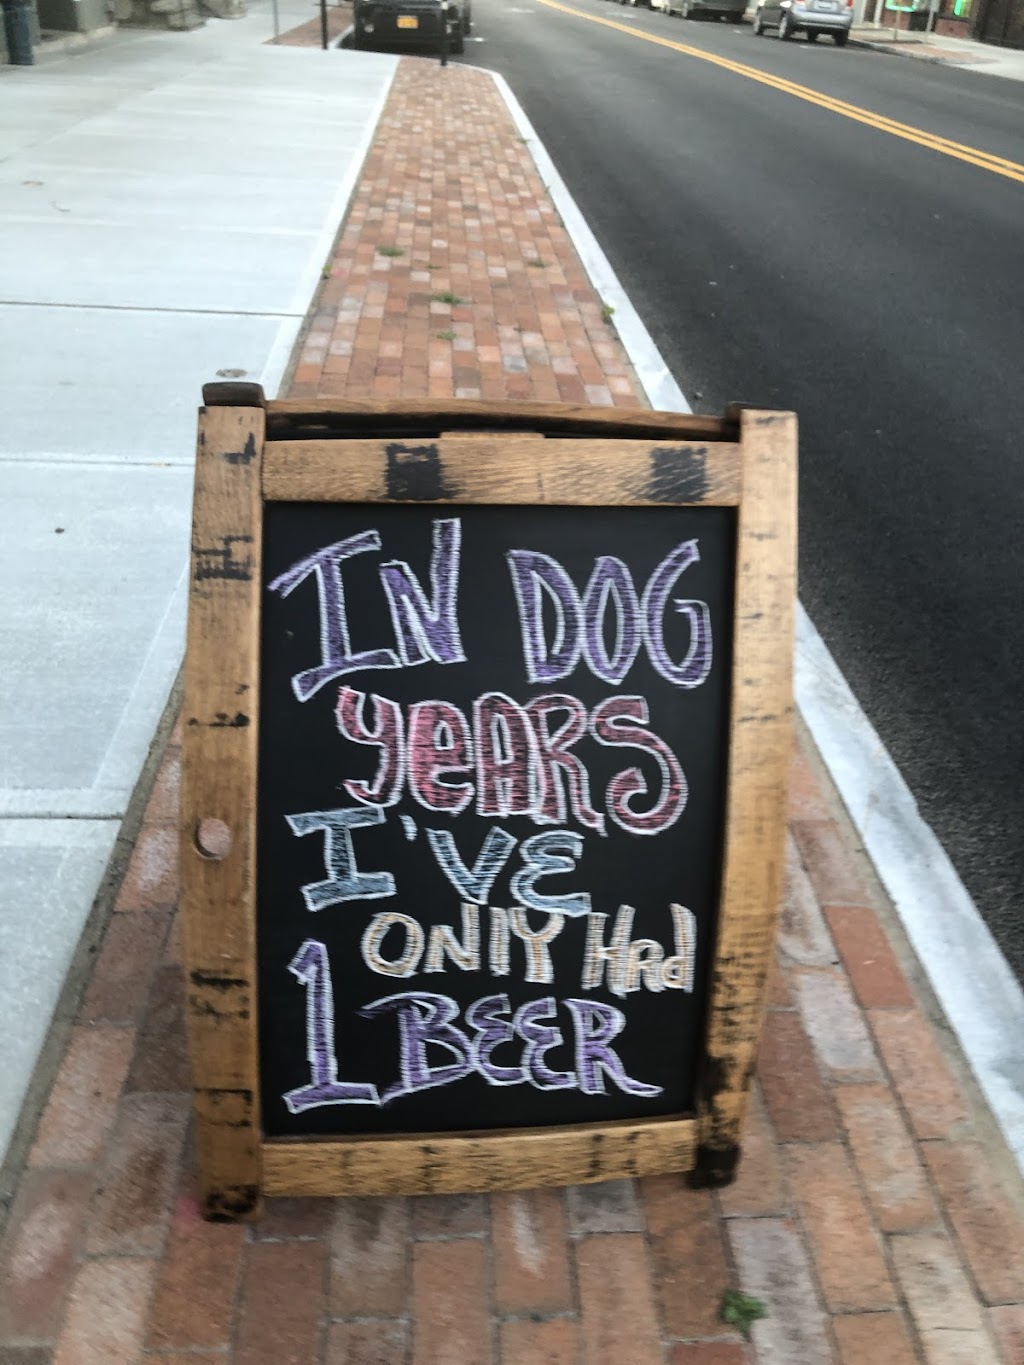 IN DOG
YEARS
I'VE
ONLY HAd
1 BEER